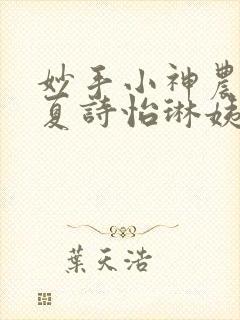 妙手小神農
夏詩怡琳姨
葉天浩